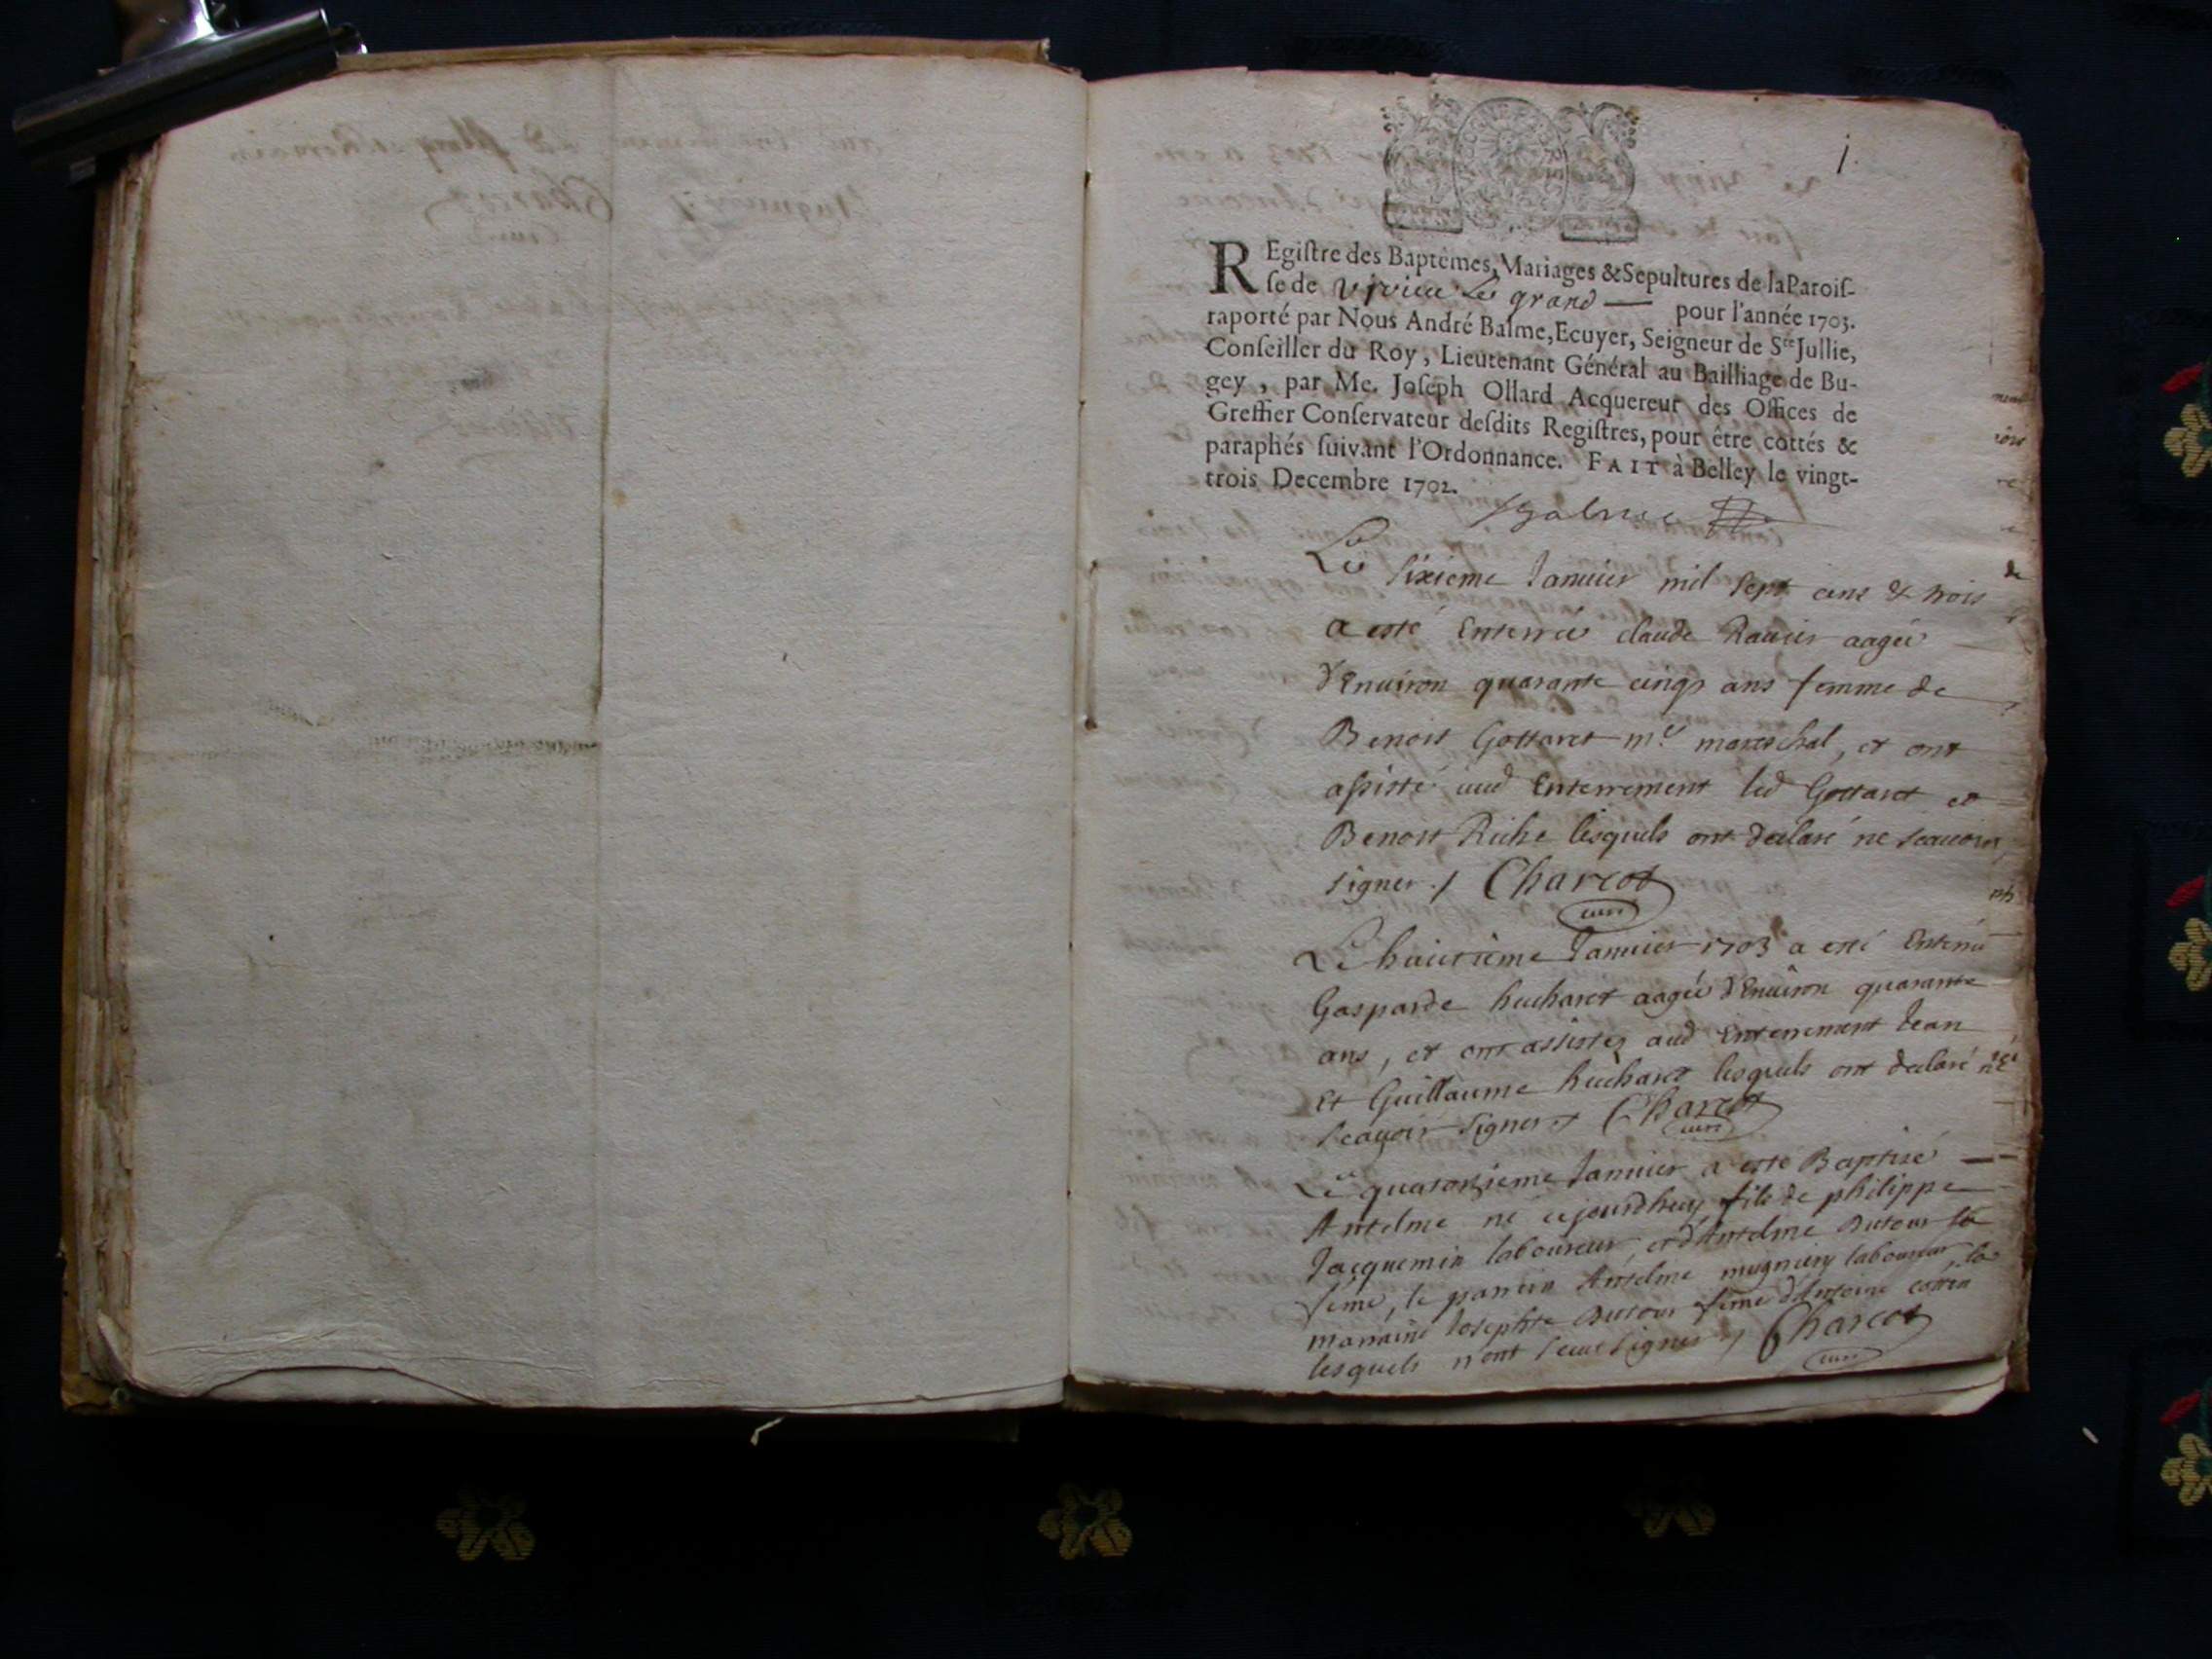 1.
REgiſtre des Baptêmes, Mariages & Sepultures de la Paroiſ-
ſe de Virieu Le grand — pour l'année 1703.
raporté par Nous André Balme, Ecuyer, Seigneur de Ste Jullie,
Conſeiller du Roy, Lieutenant Général au Bailliage de Bu-
gey, par Me. Joſeph Ollard Acquereur des Offices de
Greffier Conſervateur deſdits Regiſtres, pour être cottés &
paraphés ſuivant l'Ordonnance. FAIT à Belley le vingt-
trois Decembre 1702.
Balme
Le sixieme Januier mil sept cens & trois
a esté Enterrée claude Rauier aagée
d'Enuiron quarante cinqs ans femme de
Benoit Gottaret me mareschal, et ont
assisté aud Enterrement led Gottaret et
Benoit Riche lesquels ont declaré ne scauoir
signer ./ Charcot
curé
Le huictieme Januier 1703 a esté Enterrée
Gasparde hucharet aagée d'Enuiron quarante
ans, et ont assistez aud Enterrement Jean
et Guillaume hucharet lesquels ont declaré né
scauoir signer ./ Charcot
curé
Le quatorzieme Januier a esté Baptisé —
Antelme né cejourdhuy fils de philippe
Jacquemin laboureur, et d'Antelme Dutour sa
feme, le parrein Antelme mugniery laboureur, la
marraine Josephte Dutour feme d'Antoine cottin
lesquels n'ont sceu signer ./ Charcot
curé